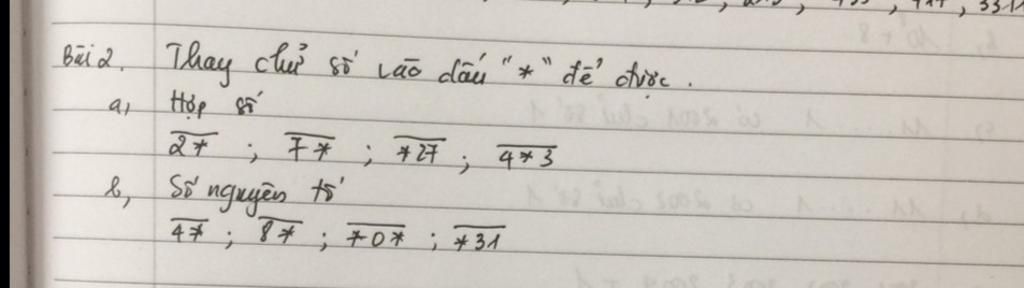 Bài 2. Thay chữ số vào dấu "*" để được.
a, Hợp số
2* ; 7* ; *27 ; 4*3
b, Số nguyên tố
4* ; 8* ; *0* ; *31